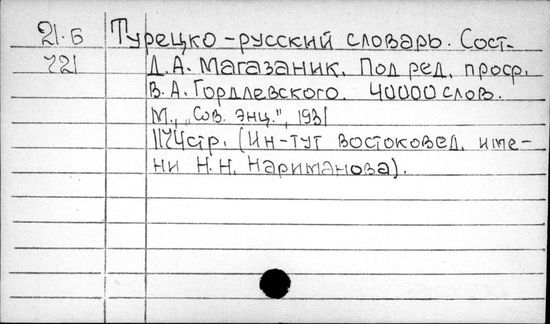 21.Б Турецко-русский словарь. Сост.
721 Д.А. Магазаник. Под ред. проф.
В.А. Гордлевского. 40000 слов.
М., „Сов. энц.", 1931
1174стр. (Ин-тут востоковед. име-
ни Н.Н. Нариманова).